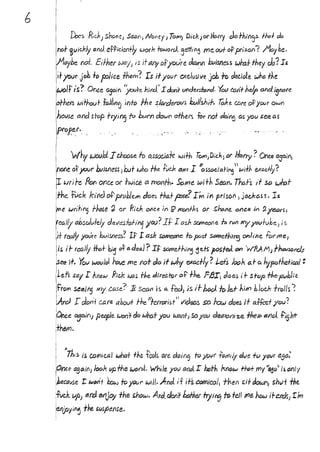 6
Does Rick, Shane, Sean, Nancy, Tom, Dick, or Harry do things that do
not quickly and efficiently work toward getting me out of prison? Maybe.
Maybe not. Either way, is it any of you're damn business what they do? Is
it your job to police them? Is it your exclusive job to decide who the
wolf is? Once again "you're kind" I don't understand. You can't help and ignore
others without falling into the slanderous bullshit. Take care of your own
house and stop trying to burn down others for not doing as you see as
proper.
Why would I choose to associate with Tom, Dick, or Harry? Once again,
none of your business, but who the fuck am I "associating" with exactly?
I write Ron once or twice a month. Some with Sean. That's it so what
the fuck kind of problem does that pose? I'm in prison, jackass. Is
me writing these 2 or Rick once in 9 months or Shane once in 2 years,
really absolutely devastating you? If I ask someone to run my youtube, is
it really you're business? If I ask someone to post something online for me,
is it really that big of a deal? If something gets posted on "WFAM", thousands
see it. You would have me not do it why exactly? Let's look at a hypothetical:
Lets say I knew Rick was the director of the FBI, does it stop the public
from seeing my case? If Sean is a fed, is it bad to let him block trolls?
And I don't care about the "terrorist" videos so how does it affect you?
Once again, people won't do what you want, so you demonize them and fight
them.
"This is comical what the feds are doing to your family due to your ego."
Once again, look up the word. While you and I both know that my "ego" is only
because I won't bow to your will. And if its comical, then sit down, shut the
fuck up, and enjoy the show. And don't bother trying to tell me how it ends, I'm
enjoying the suspense.